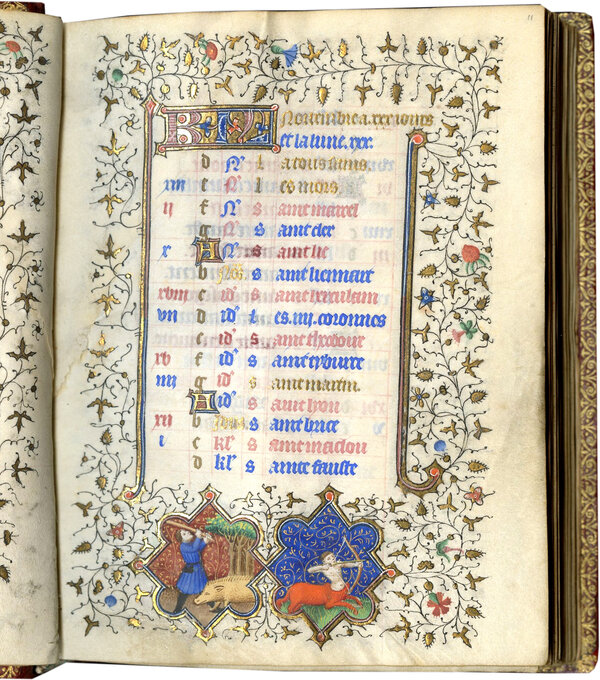 11
KL Nouembre a.xxx.iours
et la lune.xxx.
d N' L a tous sains.
xiii e N' L es mors.
ii f N' S aint marcel
g S aint cler
x A N' S aint lie
b Nos S aint liennart
xviii c id' S aint herculain
vii d id' L es.iiii.coronnes
id' S aint theodore
xv f id' S aint tyburce
iiii g id' S aint martin
A id' S aint lyon
xii b S aint brice
i c kl' S aint maclou
d kl' S ainte fauste